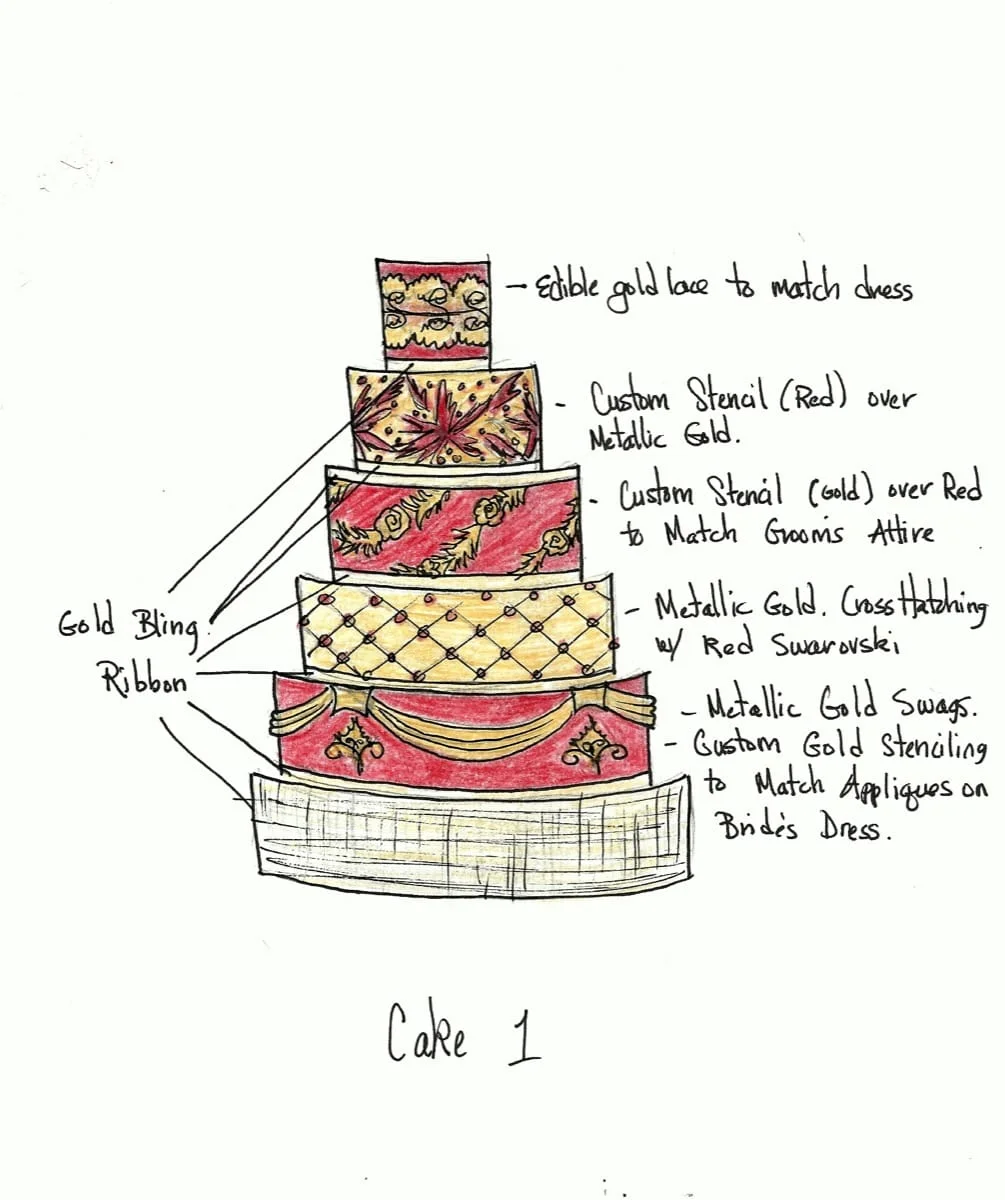 - Edible gold lace to match dress
- Custom Stencil (Red) over
Metallic Gold.
- Custom Stencil (Gold) over Red
to Match Groom's Attire
- Metallic Gold. CrossHatching
w/ Red Swarovski
Gold Bling
Ribbon
- Metallic Gold Swags.
- Custom Gold Stenciling
to Match Appliques on
Bride's Dress.
Cake 1